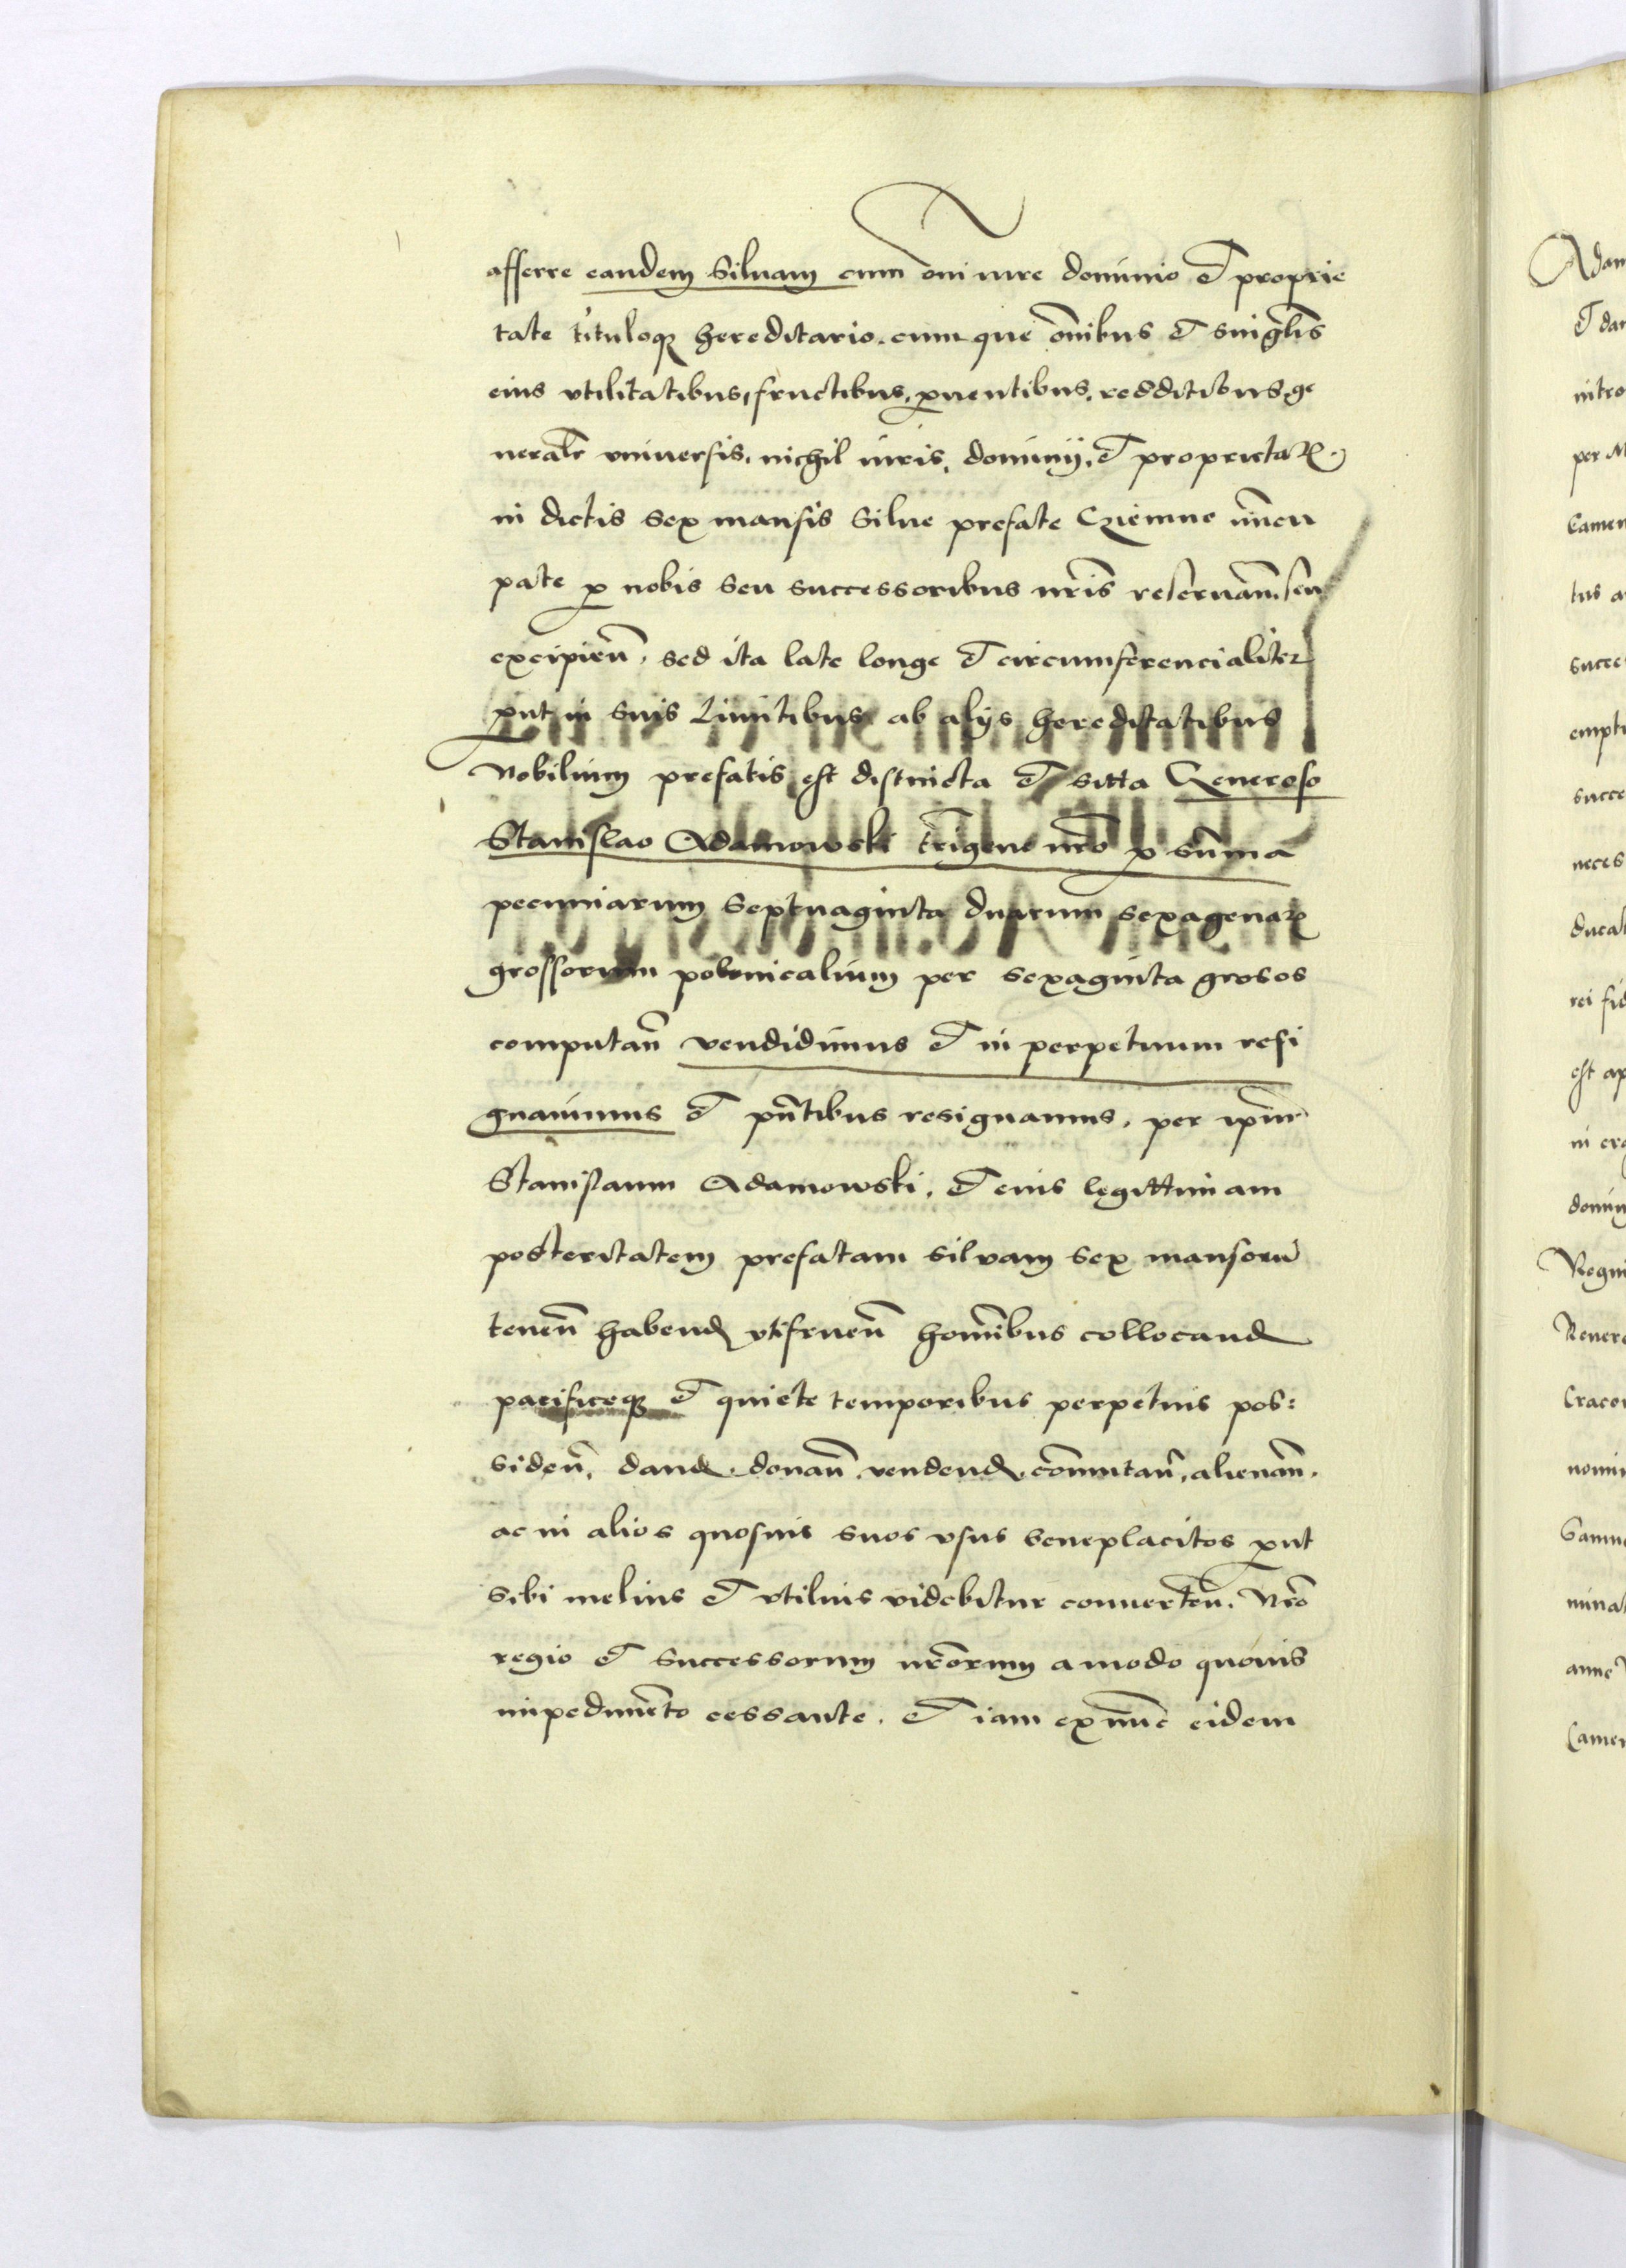 afferre eandem Siluam cum oĩ iure dominio et proprie
tate tituloqꝫ hereditario. cumque om̃ibus et singl̃is
eius vtilitatibus, fructibus, ꝓuentibus, redditibus ge
neral̃r vniuersis, nichil iuris, dominij, et proprietaꝝ
in dictis sex mansis Silue prefate
pate ꝓ nobis seu successoribus nr̃is reseruañ seu
excipień, sed ita late longe et circumferencialiter
ꝓut in suis Limitibus ab alijs hereditatibus
Nobilium prefatis est distincta et sitta Generoso
Stanislao Adamowski nr̃o ꝓ sum̃a
pecuniarum septuaginta duarum sexagenaꝝ
grossorum polonicalium per sexaginta grosos
computań vendidimus et in perpetuum resi
gnauimus et pñtibus resignamus, per ip̃m
Stanislaum Adamowski, et eius legittimam
posteritatem prefatam siluam sex mansorũ
teneñ habend vtifrueñ hom̃ibus collocand
pacificeqꝫ et quiete temporibus perpetuis pos:
sideñ, dand, donañ vendend, com̃utañ, alienañ.
ac in alios quosuis suos vsus beneplacitos ꝓut
sibi melius et vtilius videbitur conuerteñ. Nr̃o
regio et successorum nr̃orum amodo quouis
impedimẽto cessante. et iam exnũc eidem
Adam
et dar
intro
per M
Camen
tus a
succe
empti
succe
neces
ducal
rei fid
est ap
in
domin
Regni
Renere
Craco
nomin
Samu
minat
anne
Camer